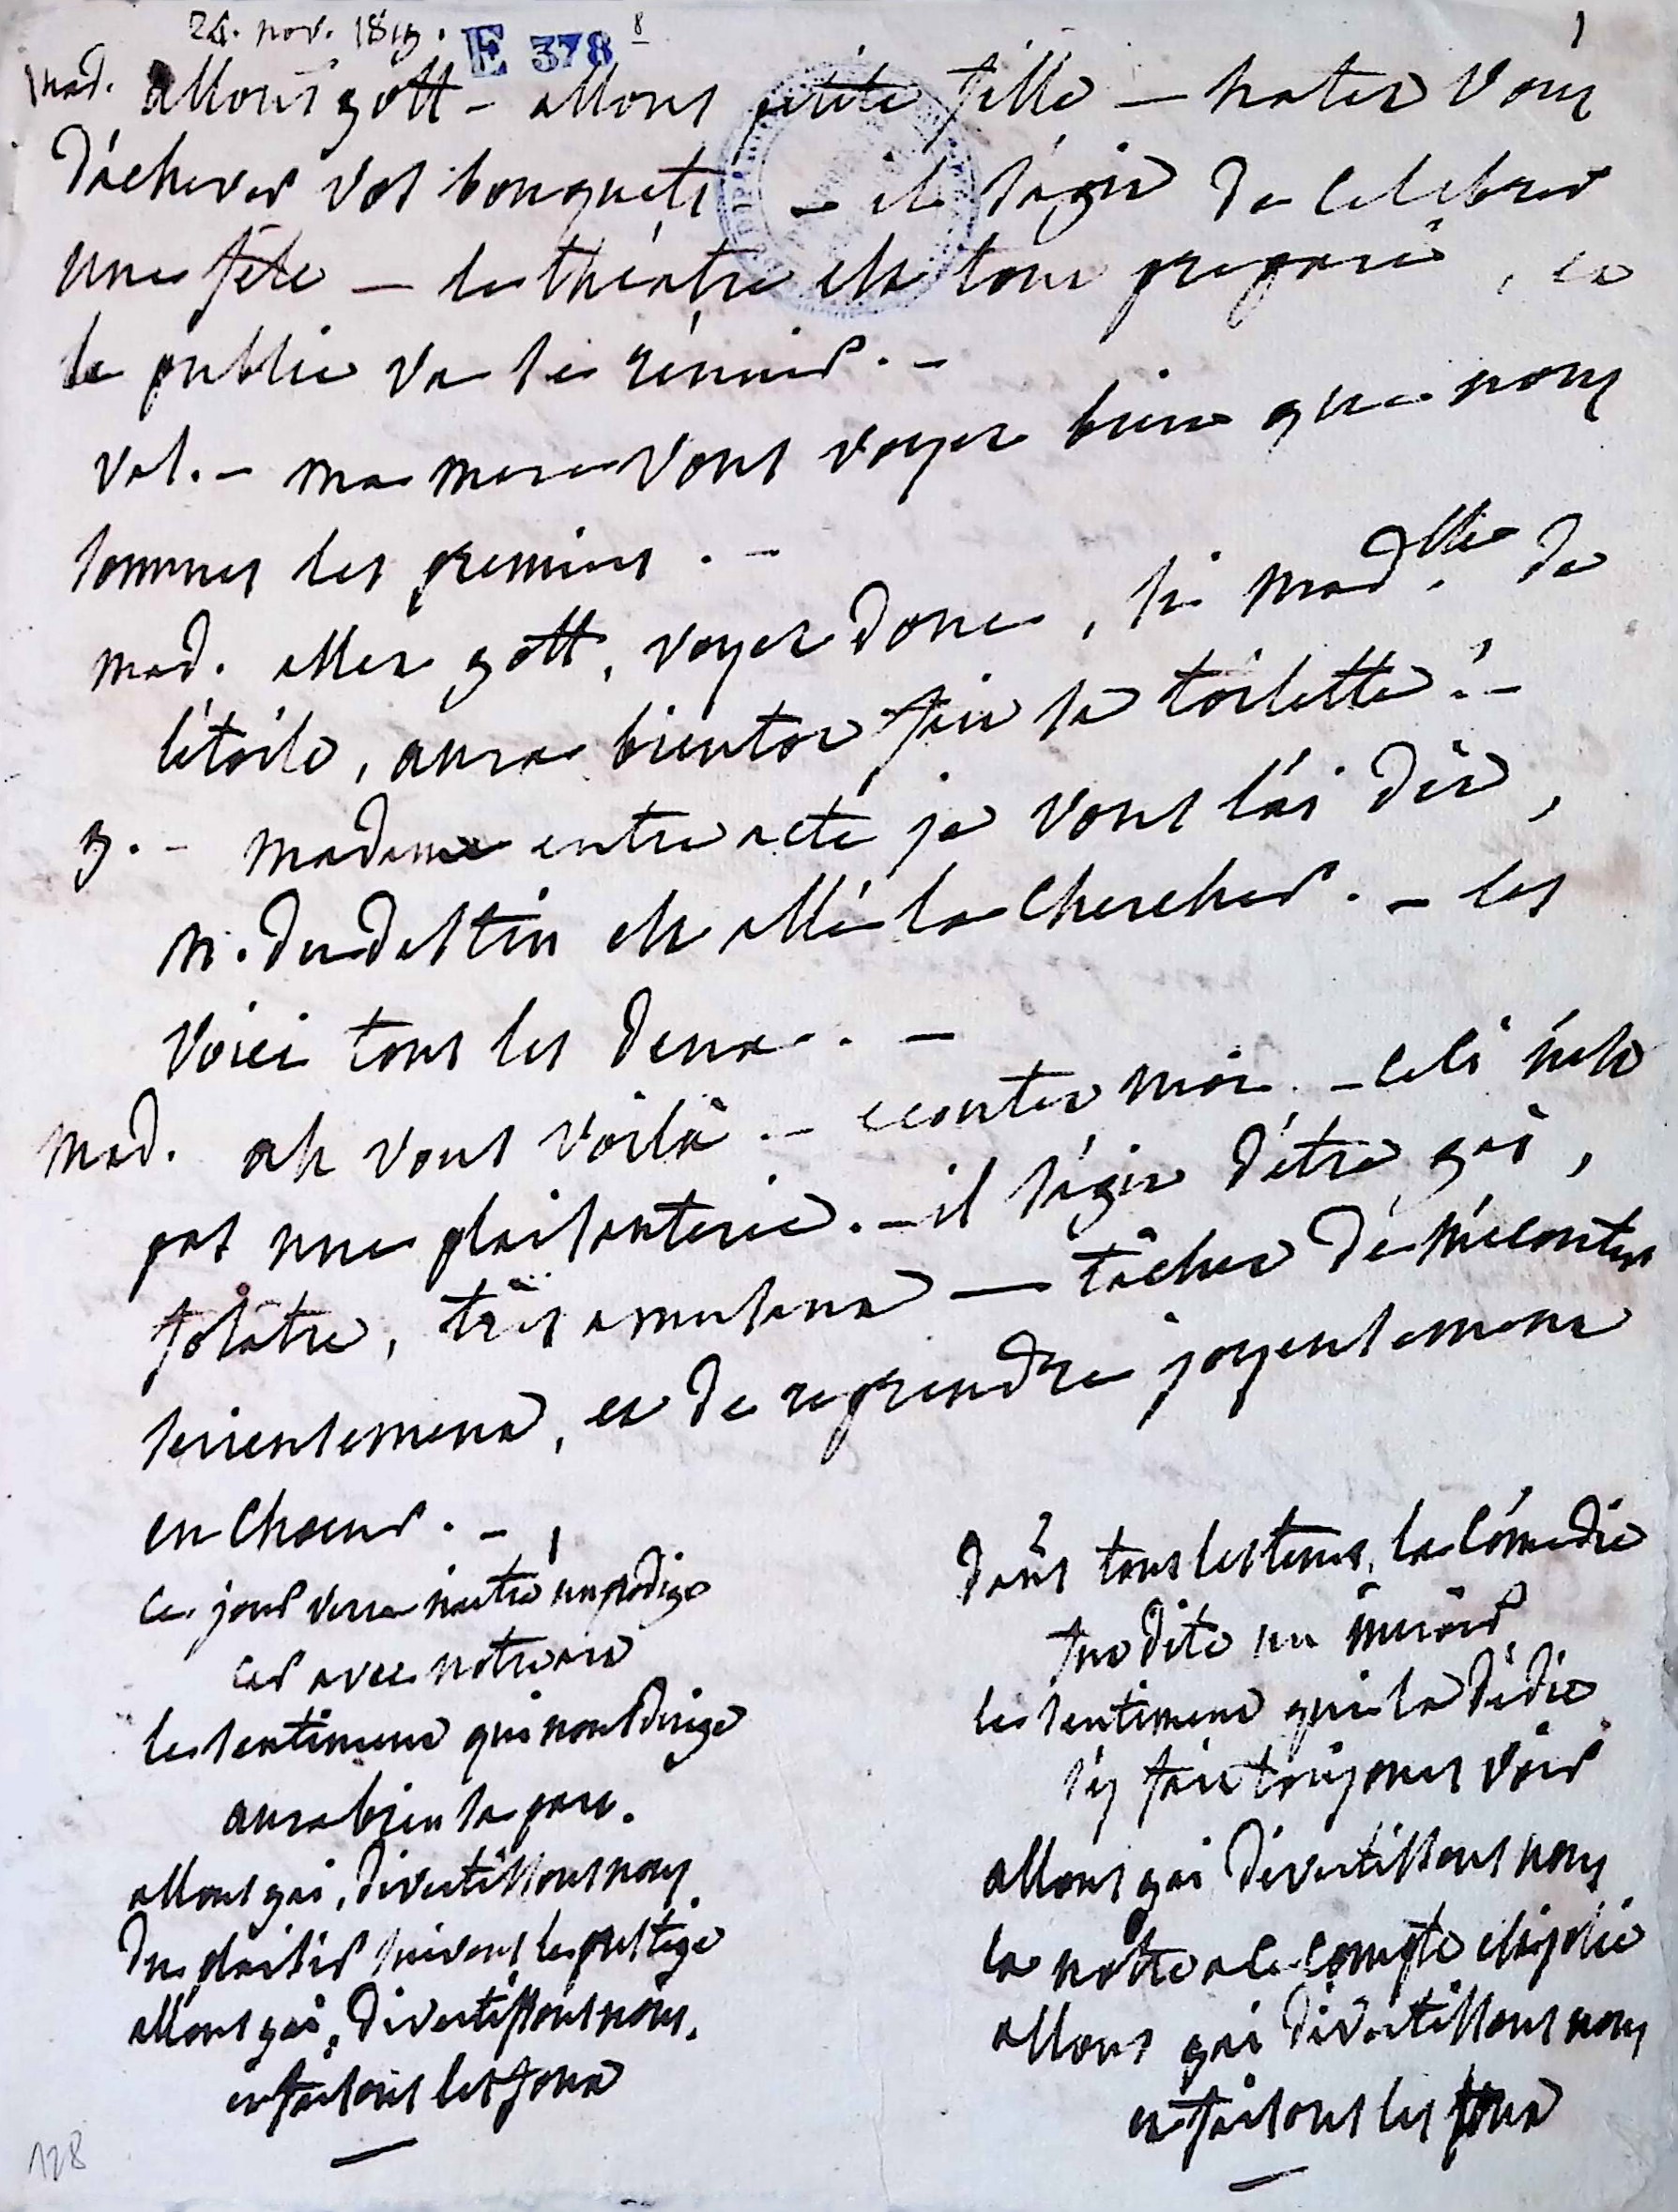 24. nov. 1813.
E 378 8
1
mad. allons gott - allons petite fille - hatez vous
d'achever vos bouquets - il s'agit de celebrer
une fête - le théatre est tout preparé, et
le public va se réunir. -
val. - ma mere vous voyez bien que nous
sommes les premiers. -
mad. allez gott, voyez donc, si mad.elle de
l'étoile, aura bientot fait sa toilette? -
g. - madame entre acte je vous l'ai dit,
m. du destin est allé la chercher. - les
voici tous les deux. -
mad. ah vous voilà. - ecoutez moi. - celi n'est
pas une plaisanterie. - il s'agit d'être gai,
folâtre, très amusant - tâchez de m'ecouter
serieusement, et de reprendre joyeusement
en choeur. -
ce jour verra naitre un prodige
car avec notre art
le sentiment qui nous dirige
aura bien sa part.
allons gai, divertissons nous
du plaisir suivons le prestige
allons gai, divertissons nous.
et faisons les foux
dans tous les tems, la comédie
fut dite un miroir
le sentiment qui la dédie
s'y fait toujours voir
allons gai divertissons nous
la notre a ce compte est jolie
allons gai divertissons nous
et faisons les foux
128